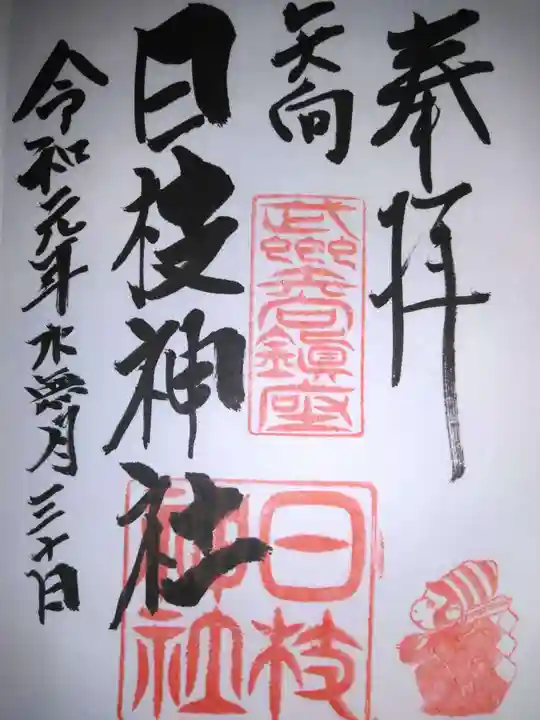 奉拝
矢向
武州矢向鎮座
日枝神社
日枝
神社
令和元年水無月三十日